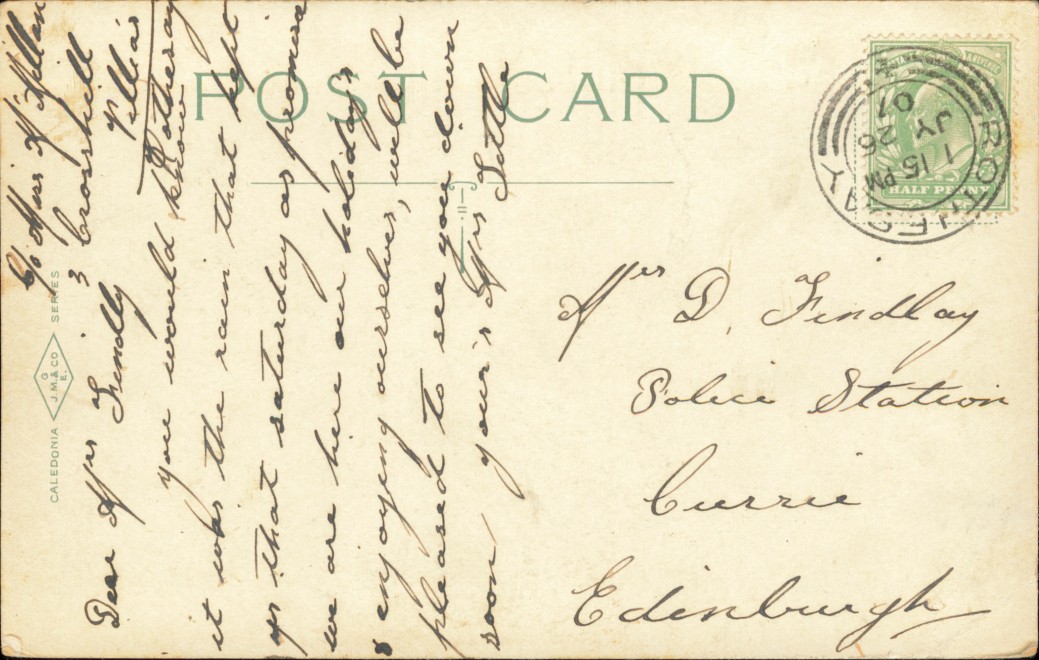 POST CARD
HALF PENNY
ROTHESAY
1 15 PM
JY 26
07
CALEDONIA SERIES
G
J.M.& CO
E.
C/o Mrs McMillan
3 Crosshill
Villas
Rothesay
Dear Mrs Findlay
you would know
it was the rain that kept
us that saturday as promise
we are here our holiday's
& enjoying ourselves, will be
pleased to see you down
soon your's Mrs Little
Mrs D. Findlay
Police Station
Currie
Edinburgh